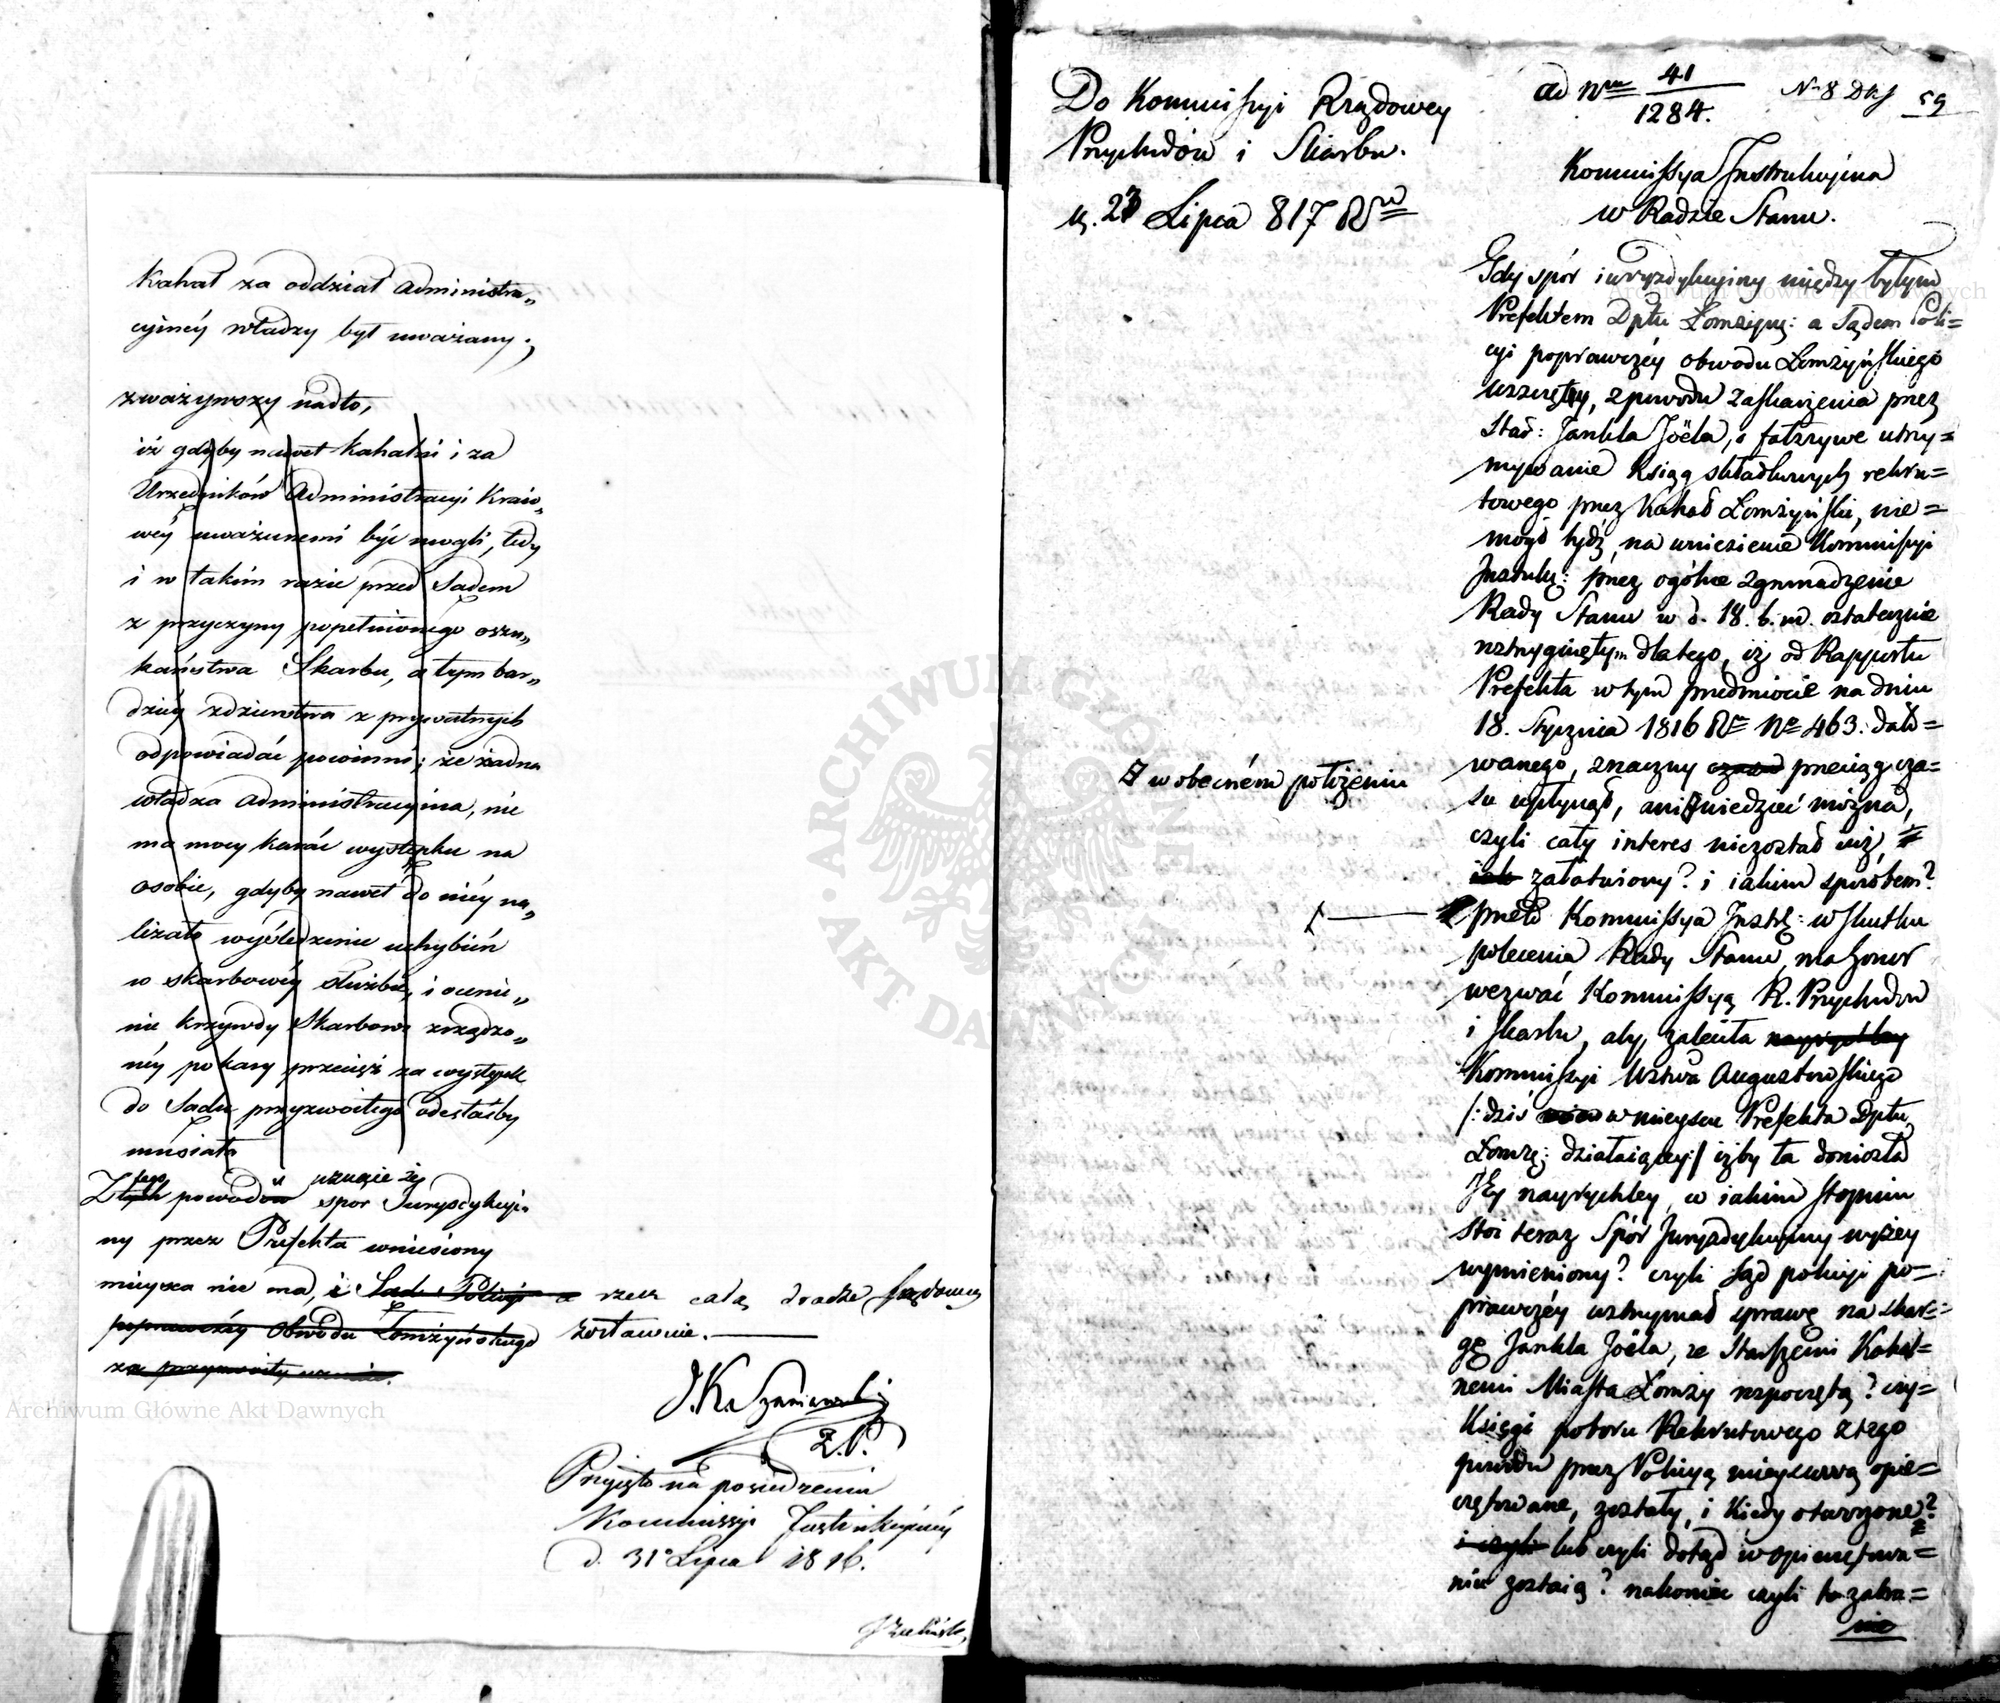 Kahał za oddział administra„
cyjney władzy był uważany;
zważywszy nadto,
iż gdyby nawet Kahalni i za
Urzędników Administracyi Kraio„
wey uważanemi być mogli, tedy
i w takim razie przed Sądem
z przyczyny popełnionego oszu„
kaństwa Skarbu, a tym bar„
dziéy zdzierstwa z prywatnych
odpowiadać powinni; że żadna
władza administracyina, nie
ma mocy karać występku na
osobie, gdyby nawet do niéy na„
leżało wyśledzenie uchybień
w skarbowéy służbie, i ocenie„
nie krzywdy Skarbowi zrządzo„
néy po kary przecież za występek
do Sądu przyzwoitego odesłaćby
musiała
Z tego powodu uznaie iż
spor Jurysdykcyi„
ny przez Prefekta wniesiony
mieysca nie ma, i Sąd Policyi a rzecz całą drodze sądowey
poprawczéy Obwodu Łomżyńskiego zostawie.
za przyzwoity uznaie.
J.K. Szaniawski
Z.P.
Przyięto na posiedzeniu
Kommissyi Instrukcyinéy
d. 31° Lipca 1816.
Archiwum Główne Akt Dawnych
Do Kommissyi Rządowey
Przychodów i Skarbu.
23 Lipca 817 R
ad Nrum 41/1284.
N 8 59
Kommissya Instrukcyina
w Radzie Stanu.
Gdy spór iuryzdykcyiny między byłym
Prefektem Dptu Łomżyń: a Sądem Poli=
cyi poprawczéy obwodu Łomżyńskiego
wszczęty, z powodu zaskarżenia przez
Star: Jankla Joëla, o fałszywe utrzy=
mywanie Ksiąg składkowych rekru=
towego przez Kahał Łomżyński, nie=
mógł bydź, na wniesienie Kommissyi
Instruk: przez ogólne zgromadzenie
Rady Stanu w d. 18. b. m. ostatecznie
roztrzygniętym dlatego, iż od Rapportu
Prefekta w tym przedmiocie na dniu
18. Stycznia 1816 R. No 463. dato=
wanego, znaczny czasu przeciąg cza=
su upłynął, ani wiedzieć można,
czyli cały interes niezostał iuż,
iak załatwiony? i iakim sposobem?
w obecném położeniu
przeto Kommissya Instr: w skutku
polecenia Rady Stanu, ma honor
wezwać Kommissyą R. Przychodów
i Skarbu, aby zaleciła nayrychley
Kommissyi Wztwa Augustowskiego
/: dziś w mieyscu Prefekta Dptu
Łomż: działaiącey :/ iżby ta doniosła
Jey nayrychley, w iakim stopniu
stoi teraz Spór Juryzdykcyiny wyżey
wymieniony? czyli Sąd policyi po=
prawczéy wstrzymał sprawę na skar=
gę Jankla Joëla, ze Starszemi Kahal=
nemi Miasta Łomży rozpoczętą? czy=
Księgi poboru Rekrutowego z tego
powodu przez Policyą mieyscową opie=
czętowane, zostały, i kiedy otworzone?
i czyli lub czyli dotąd w opieczętowa=
niu zostaią? nakoniec czyli ta zabra=
nie
ARCHIWUM GŁÓWNE AKT DAWNYCH
Archiwum Główne Akt Dawnych